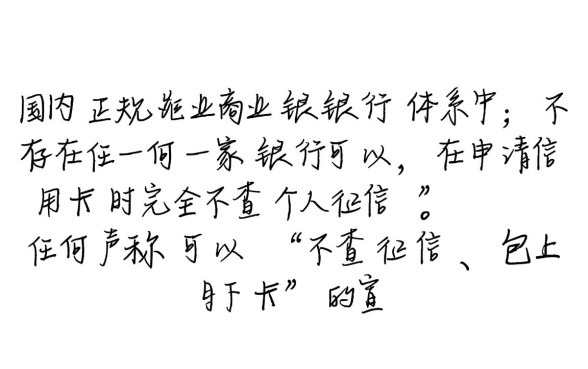 国内正规商业商业银银行体系中；不
存在任一何一家银行可以，在申请信
用卡时完全不查个人征信”。
任何声称可以“不查征信、包上
下卡”的宣